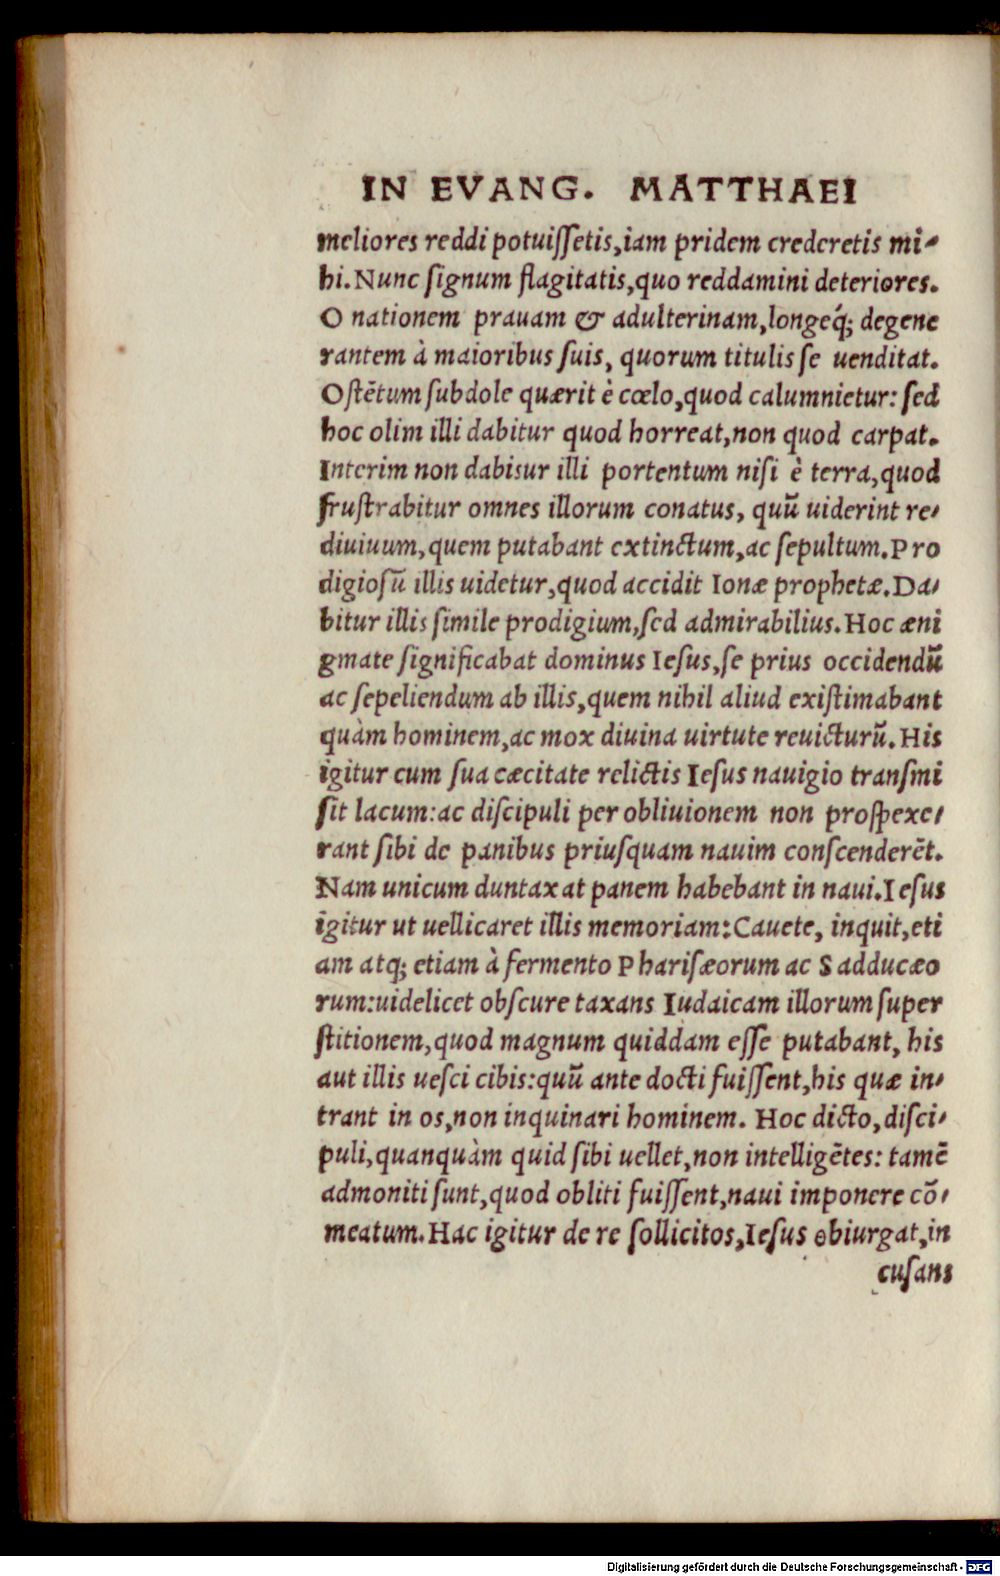 IN EVANG. MATTHAEI
meliores reddi potuiſſetis,iam pridem crederetis mi-
hi.Nunc ſignum flagitatis,quo reddamini deteriores.
O nationem prauam & adulterinam,longeq́; degene
rantem à maioribus ſuis, quorum titulis ſe uenditat.
Oſtẽtum ſubdole quærit è cœlo,quod calumnietur: ſed
hoc olim illi dabitur quod horreat,non quod carpat.
Interim non dabitur illi portentum niſi è terra,quod
fruſtrabitur omnes illorum conatus, quũ uiderint re-
diuiuum,quem putabant extinctum,ac ſepultum.Pro
digioſũ illis uidetur,quod accidit Ionæ prophetæ.Da-
bitur illis ſimile prodigium,ſed admirabilius.Hoc æni
gmate ſignificabat dominus Ieſus,ſe prius occidendũ
ac ſepeliendum ab illis,quem nihil aliud exiſtimabant
quàm hominem,ac mox diuina uirtute reuicturũ.His
igitur cum ſua cæcitate relictis Ieſus nauigio tranſmi
ſit lacum:ac diſcipuli per obliuionem non proſpexe-
rant ſibi de panibus priuſquam nauim conſcenderẽt.
Nam unicum duntaxat panem habebant in naui.Ieſus
igitur ut uellicaret illis memoriam:Cauete, inquit,eti
am atq; etiam à fermento Phariſæorum ac Sadducæo
rum:uidelicet obſcure taxans Iudaicam illorum ſuper
ſtitionem,quod magnum quiddam eſſe putabant, his
aut illis ueſci cibis:quũ ante docti fuiſſent,his quæ in-
trant in os,non inquinari hominem. Hoc dicto,diſci-
puli,quanquàm quid ſibi uellet,non intelligẽtes: tamẽ
admoniti ſunt,quod obliti fuiſſent,naui imponere cõ-
meatum.Hac igitur de re ſollicitos,Ieſus obiurgat,in
cuſans
Digitalisierung gefördert durch die Deutsche Forschungsgemeinschaft - DFG